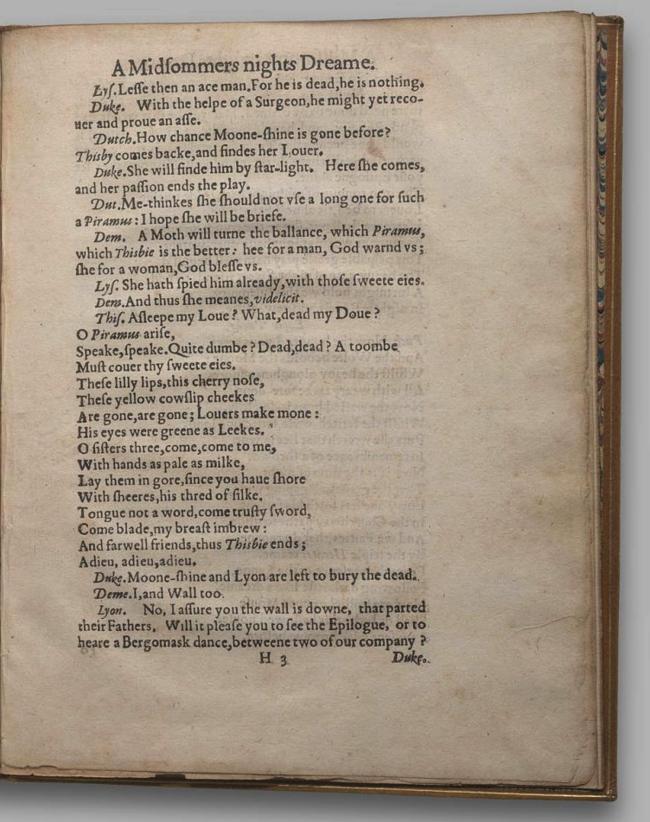 A Midſommers nights Dreame.
Lyſ. Leſſe then an ace man. For he is dead, he is nothing.
Duke. With the helpe of a Surgeon, he might yet reco-
uer and proue an aſſe.
Dutch. How chance Moone-ſhine is gone before?
Thisby comes backe, and findes her Louer.
Duke. She will finde him by ſtar-light. Here ſhe comes,
and her paſſion ends the play.
Dut. Me-thinkes ſhe ſhould not vſe a long one for ſuch
a Piramus: I hope ſhe will be briefe.
Dem. A Moth will turne the ballance, which Piramus,
which Thisbie is the better: hee for a man, God warnd vs;
ſhe for a woman, God bleſſe vs.
Lyſ. She hath ſpied him already, with thoſe ſweete eies.
Dem. And thus ſhe meanes, videlicit.
Thiſ. Aſleepe my Loue? What, dead my Doue?
O Piramus ariſe,
Speake, ſpeake. Quite dumbe? Dead, dead? A toombe
Muſt couer thy ſweete eies.
Theſe lilly lips, this cherry noſe,
Theſe yellow cowſlip cheekes
Are gone, are gone; Louers make mone:
His eyes were greene as Leekes.
O ſiſters three, come, come to me,
With hands as pale as milke,
Lay them in gore, ſince you haue ſhore
With ſheeres, his thred of ſilke.
Tongue not a word, come truſty ſword,
Come blade, my breaſt imbrew:
And farwell friends, thus Thisbie ends;
Adieu, adieu, adieu.
Duke. Moone-ſhine and Lyon are left to bury the dead.
Deme. I, and Wall too.
Lyon. No, I aſſure you the wall is downe, that parted
their Fathers. Will it pleaſe you to ſee the Epilogue, or to
heare a Bergomask dance, betweene two of our company?
H 3 Duke.